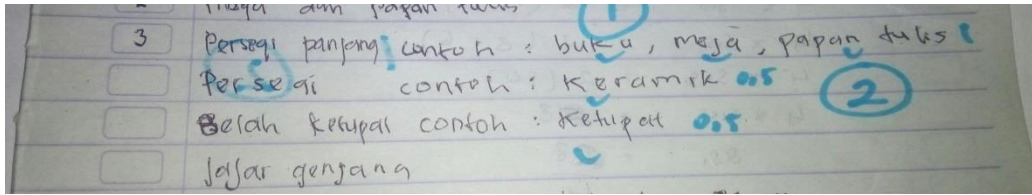 meja dan papan tulis 1
3 Persegi panjang contoh : buku, meja, papan tulis 1
Persegi contoh : Keramik 0.5 2
Belah Ketupat contoh : Ketupat 0.5
Jajar genjang